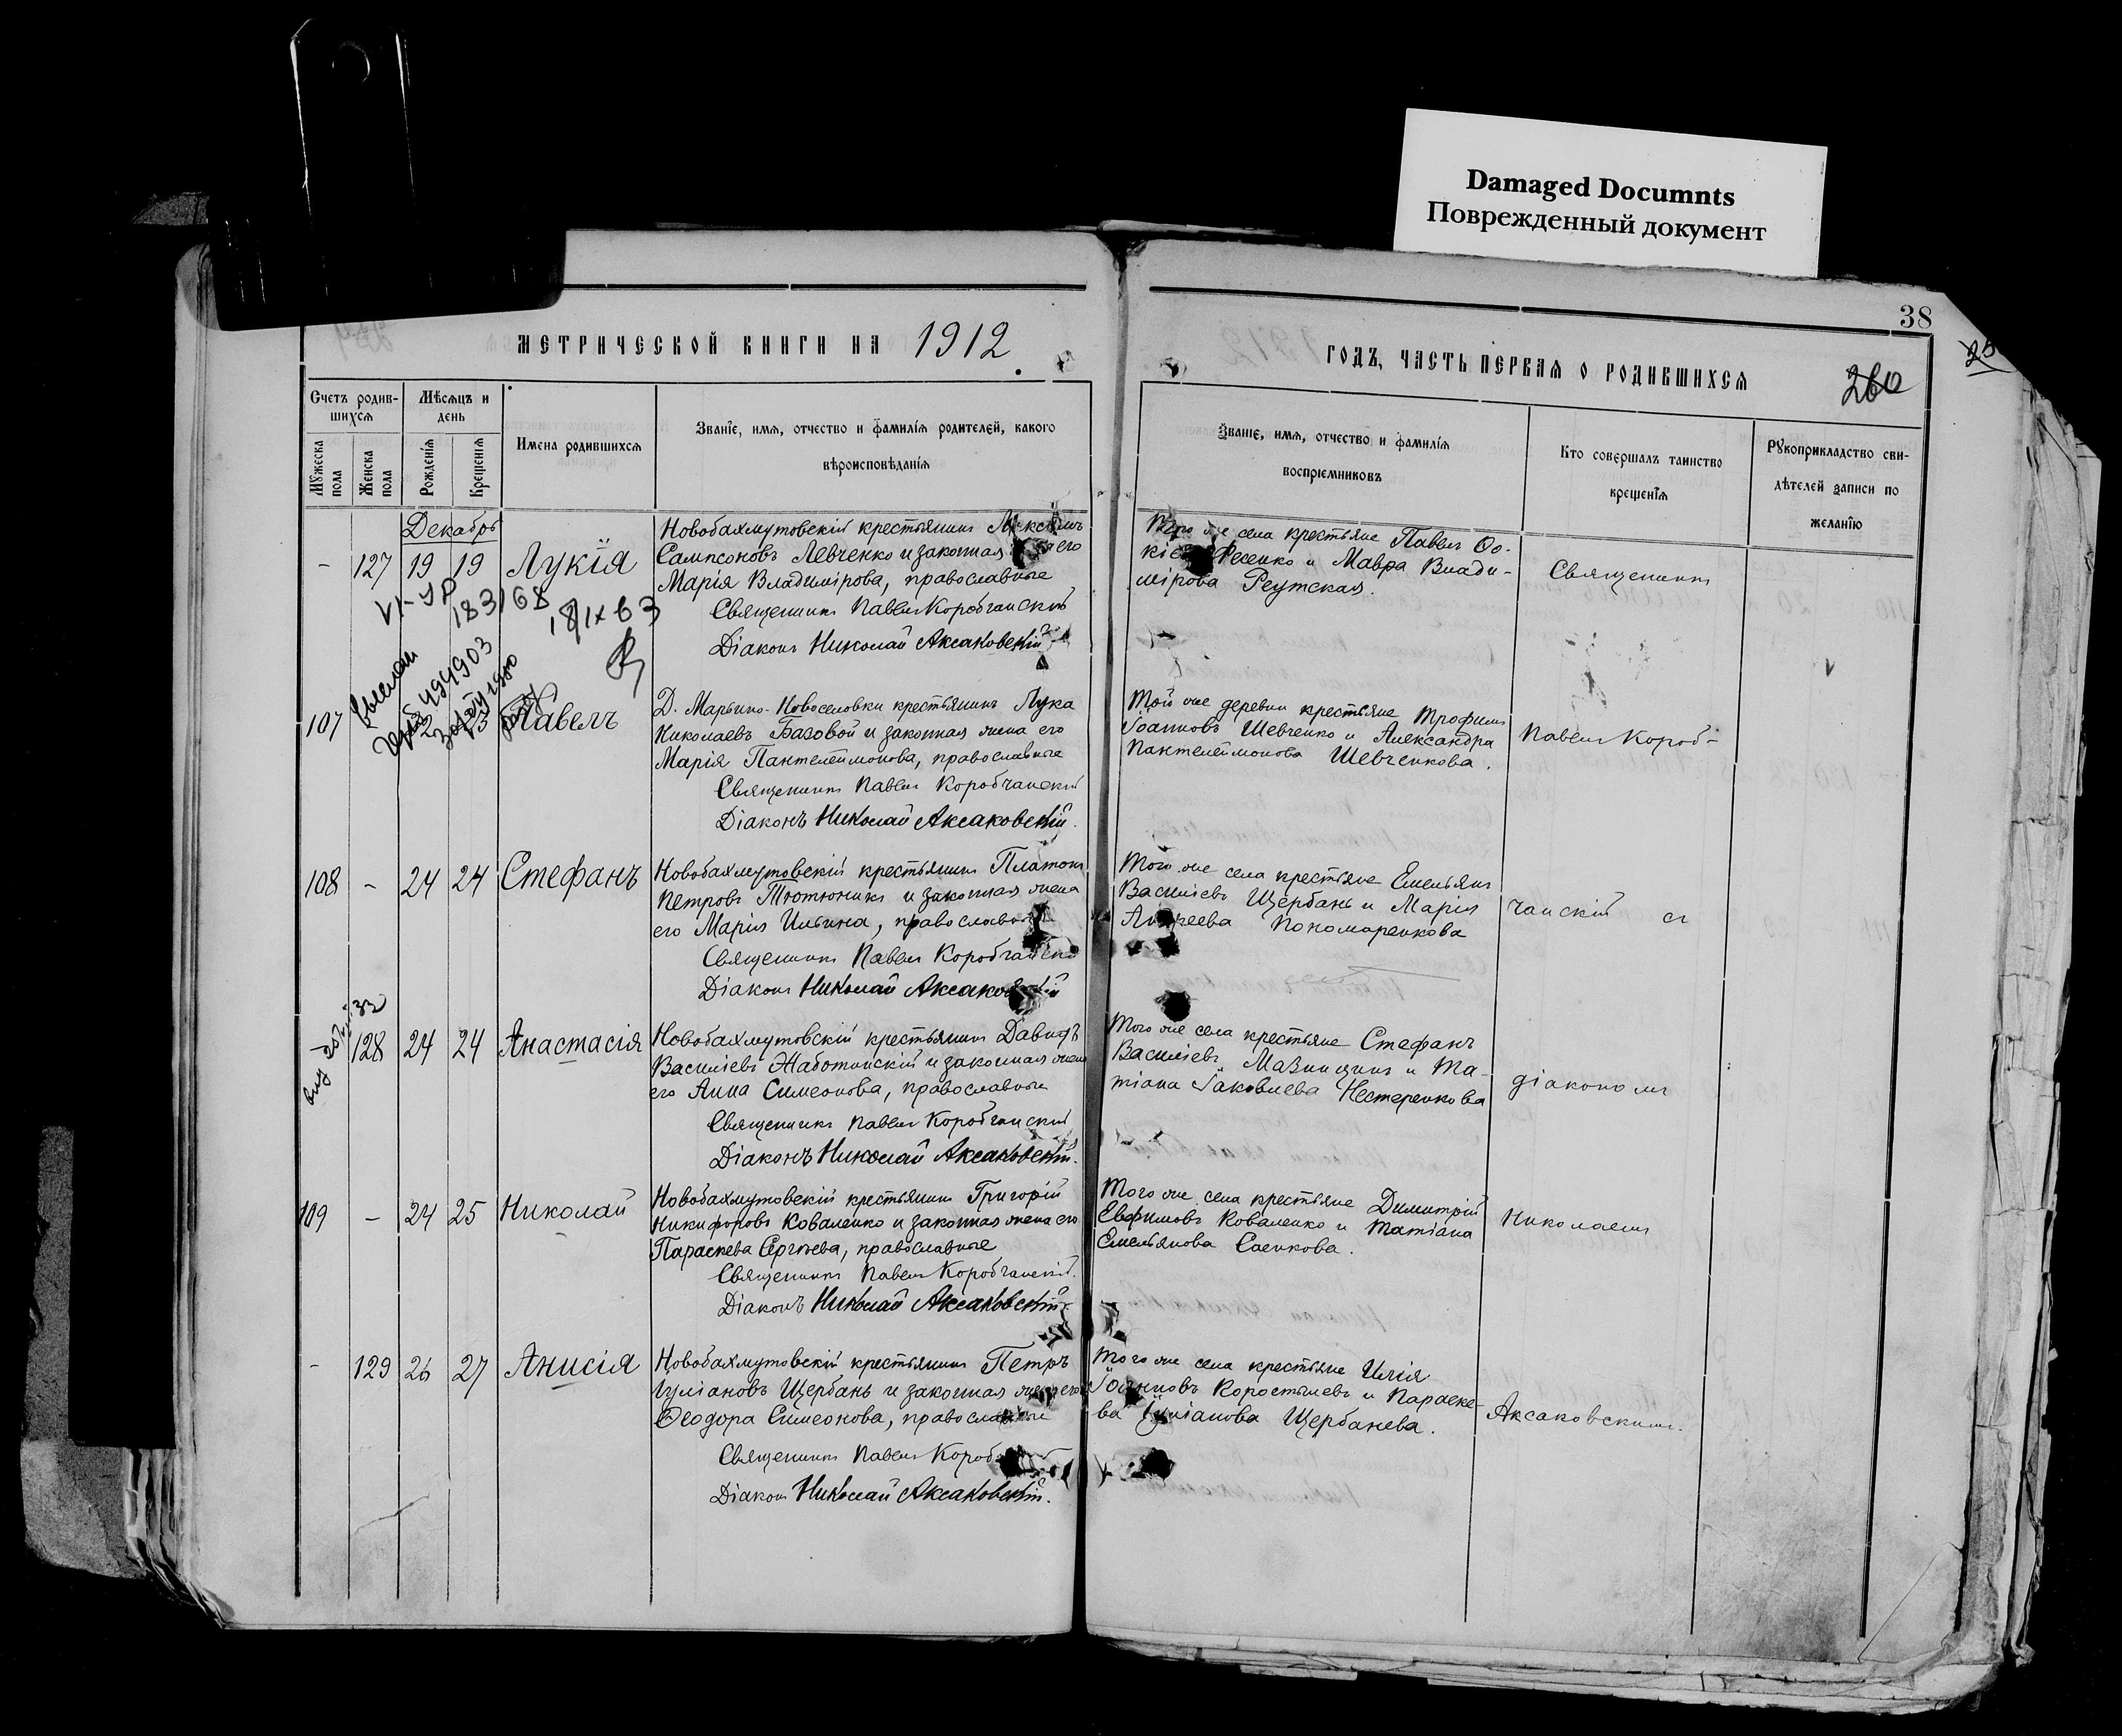 Damaged Documnts
Поврежденный документ
38
МЕТРИЧЕСКОЙ КНИГИ НА 1912
ГОДЪ, ЧАСТЬ ПЕРВАЯ О РОДИВШИХСЯ
260
25
Счетъ родив-
шихся
Мѣсяцъ и
день
Мужеска
пола
Женска
пола
Рожденія
Крещенія
Имена родившихся
Званіе, имя, отчество и фамилія родителей, какого
вѣроисповѣданія
Званіе, имя, отчество и фамилія
воспріемниковъ
Кто совершалъ таинство
крещенія
Рукоприкладство сви-
дѣтелей записи по
желанію
Декабрь
- 127 19 19 Лукія
Новобахмутовскій крестьянинъ
Сампсоновъ Левченко и законная его
Марія Владимірова, православные
Священникъ Павелъ Коробчанскій
Діаконъ Николай Аксаковскій
Того же села крестьяне Павелъ Ѳо-
Фесенко и Мавра Влади-
мірова Реутская.
Священникъ
VI-УР
183168
18/IX 63
494903
107 Павелъ
Д. Марьино-Новоселовки крестьянинъ Лука
Николаевъ Базовой и законная жена его
Марія Пантелеймонова, православные
Священникъ Павелъ Коробчанскій
Діаконъ Николай Аксаковскій.
Той же деревни крестьяне Трофимъ
Іоанновъ Шевченко и Александра
Пантелеймонова Шевченкова.
Павелъ Короб-
108 - 24 24 Стефанъ
Новобахмутовскій крестьянинъ Платонъ
Петровъ Тютюникъ и законная жена
его Марія Ильина, православные
Священникъ Павелъ Коробчанскій
Діаконъ Николай Аксаковскій
Того же села крестьяне Емельянъ
Василіевъ Щербань и Марія
Пономаренкова
чанскій съ
128 24 24 Анастасія
Новобахмутовскій крестьянинъ Давидъ
Василіевъ Жаботинскій и законная жена
его Анна Симеонова, православные
Священникъ Павелъ Коробчанскій
Діаконъ Николай Аксаковскій.
Того же села крестьяне Стефанъ
Василіевъ и Та-
тіана Іаковлева Нестеренкова
діакономъ
109 - 24 25 Николай
Новобахмутовскій крестьянинъ Григорій
Никифоровъ Коваленко и законная жена его
Параскева Сергѣева, православные
Священникъ Павелъ Коробчанскій.
Діаконъ Николай Аксаковскій.
Того же села крестьяне Димитрій
Евфимовъ Коваленко и Татіана
Емельянова Саенкова.
Николаемъ
- 129 26 27 Анисія
Новобахмутовскій крестьянинъ Петръ
Іуліановъ Щербань и законная жена его
Ѳеодора Симеонова, православные
Священникъ Павелъ Короб
Діаконъ Николай Аксаковскій.
Того же села крестьяне Илія
Іоанновъ Коростылевъ и Параске-
ва Іуліанова Щербанева.
Аксаковскимъ.